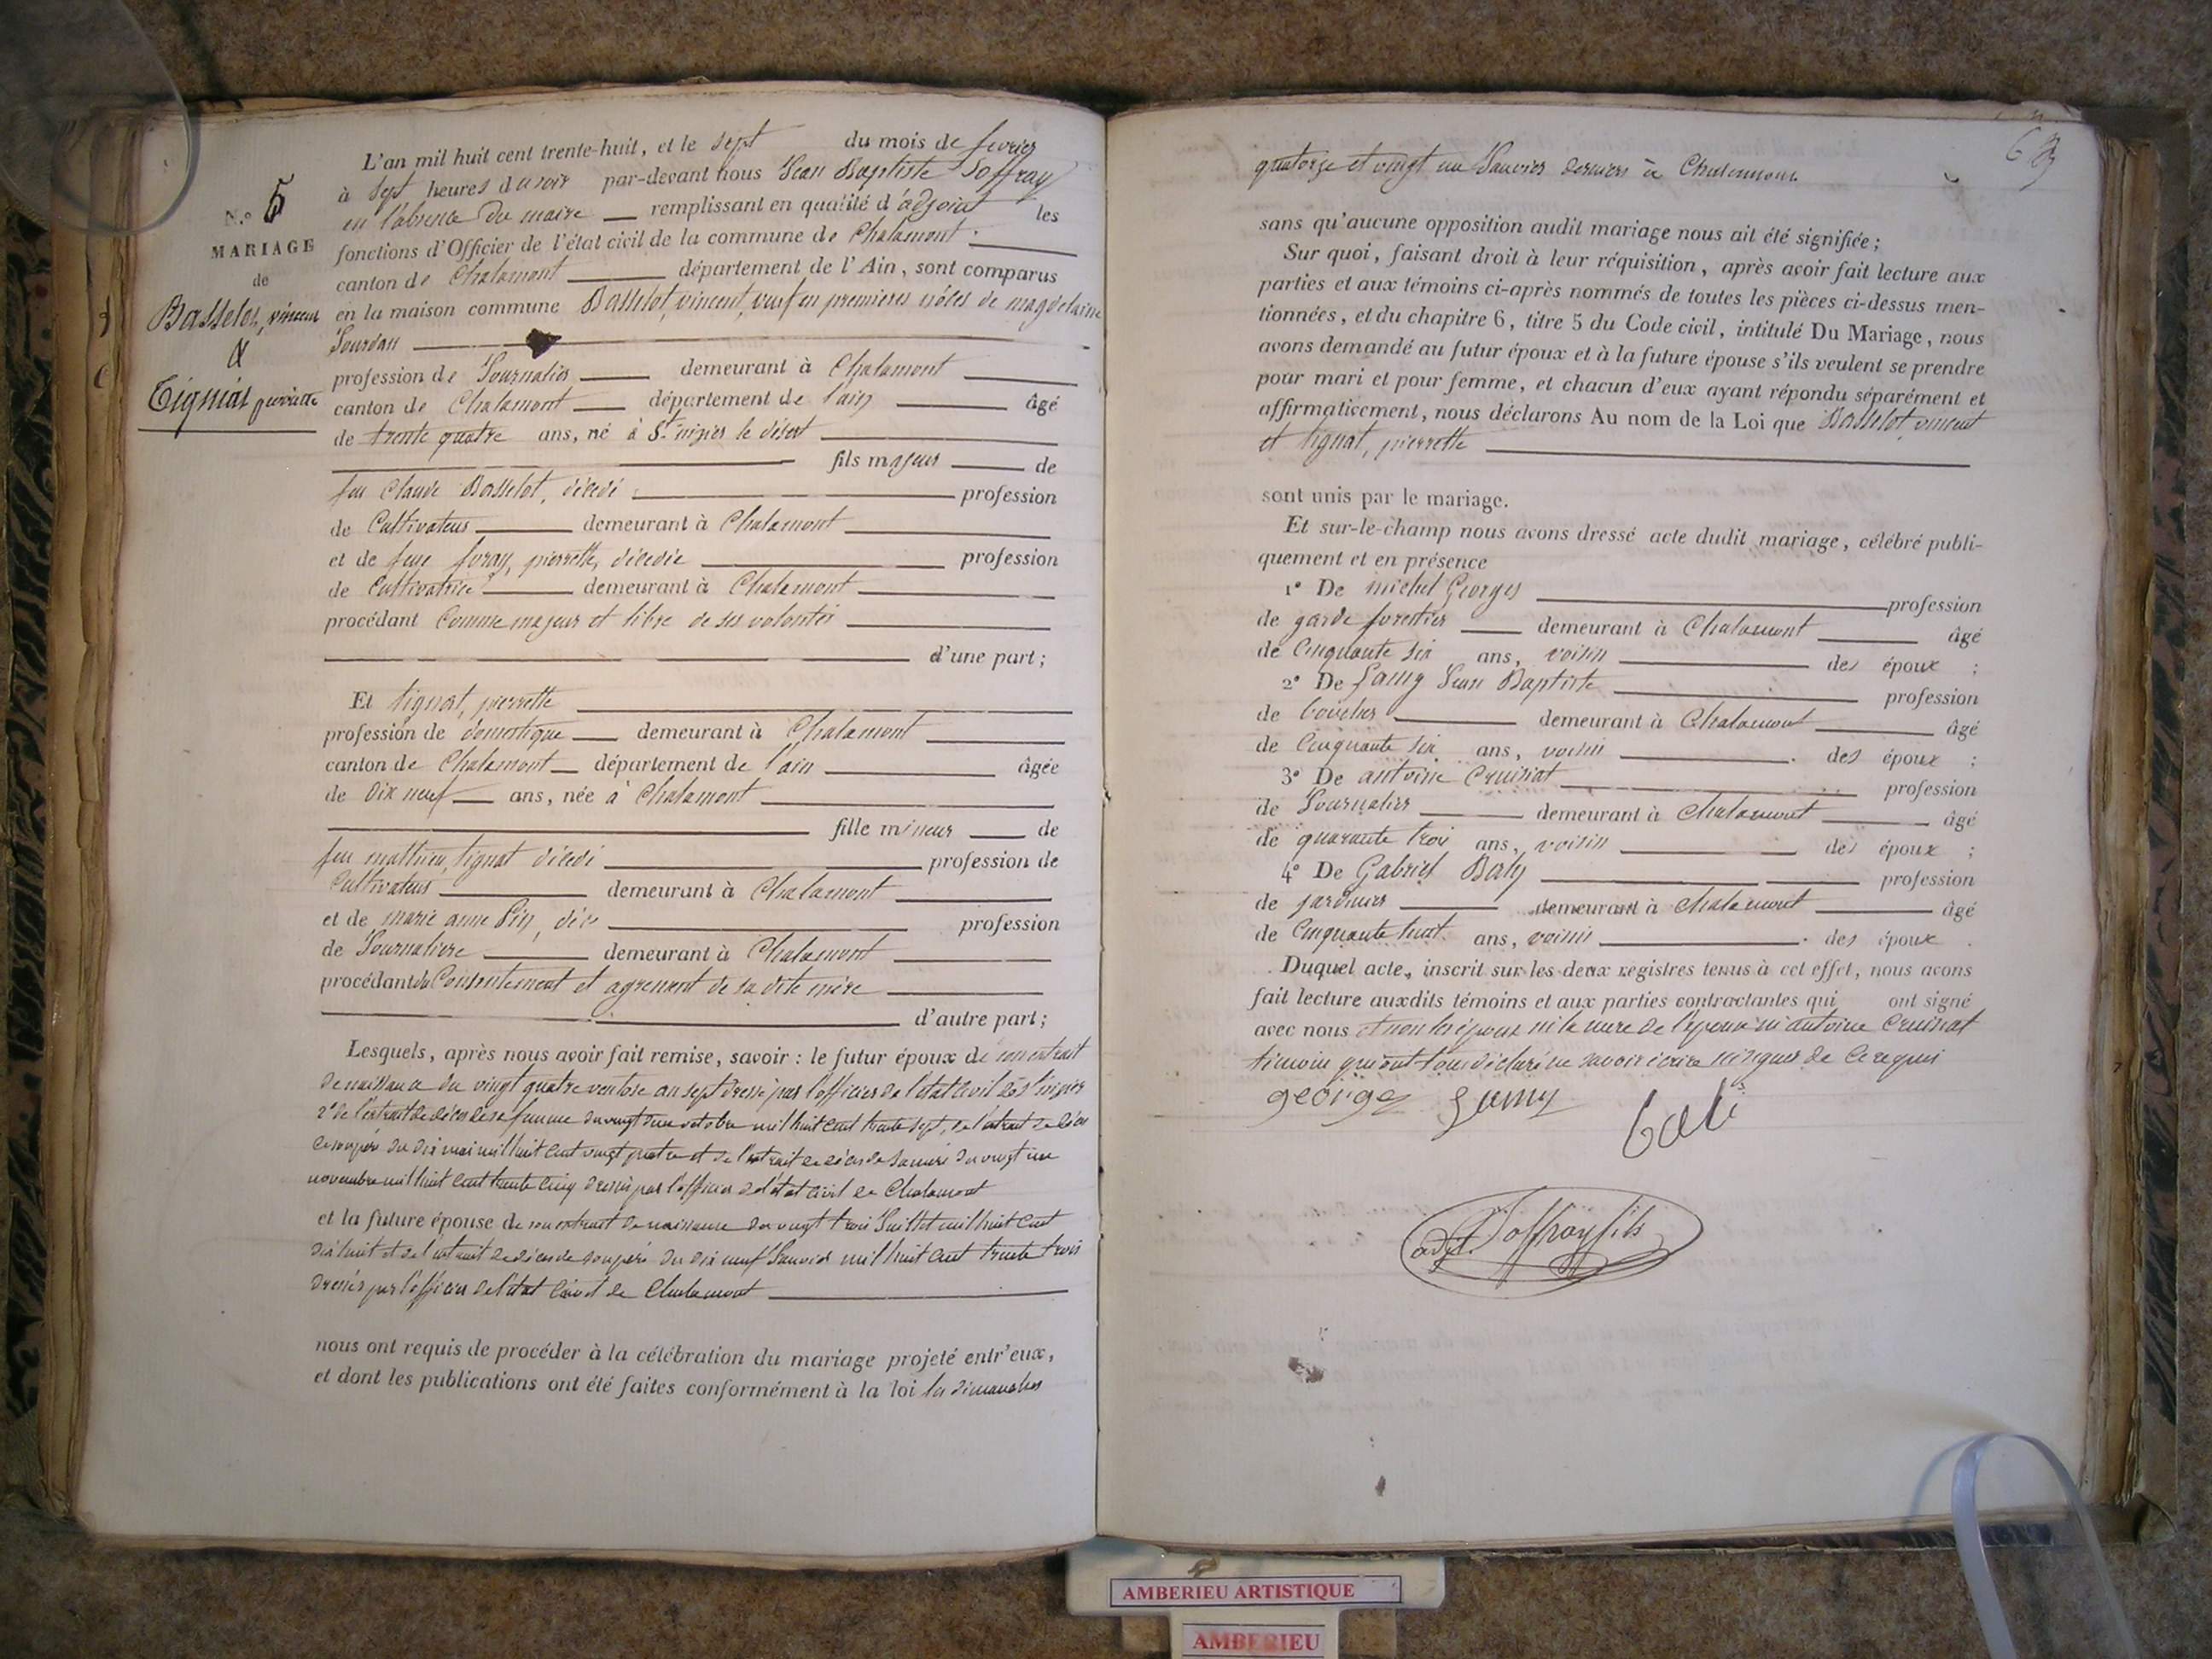 N.o 5
MARIAGE
de
Basselot, vincent
&
Tignat pierrette
L'an mil huit cent trente-huit, et le sept du mois de fevrier
à sept heures du soir par-devant nous Jean Baptiste Joffray
en l'absence du maire remplissant en qualité d'adjoint les
fonctions d'Officier de l'état civil de la commune de Chalamont
canton de Chalamont département de l'Ain, sont comparus
en la maison commune Basselot, vincent, veuf en premieres nôces de magdelaine
Jourdan
profession de Journalier demeurant à Chalamont
canton de Chalamont département de l'ain âgé
de trente quatre ans, né à St. nizier le désert
fils majeur de
feu Claude Basselot, décédé profession
de Cultivateur demeurant à Chalamont
et de feue foray, pierrette, décédée profession
de Cultivatrice demeurant à Chalamont
procédant Comme majeur et libre de ses volontés
d'une part;
Et tignat, pierrette
profession de domestique demeurant à Chalamont
canton de Chalamont département de l'ain âgée
de dix neuf ans, née à Chalamont
fille mineur de
feu mathieu tignat décédé profession de
Cultivateur demeurant à Chalamont
et de marie anne profession
de Journaliere demeurant à Chalamont
procédant du Consentement et agrement de sa dite mère
d'autre part;
Lesquels, après nous avoir fait remise, savoir: le futur époux de son extrait
de naissance du vingt quatre ventose an sept dressé par l'officier de l'état civil de st Nizier
2° de l'extrait de décès de sa femme du vingt une octobre mil huit cent trente sept, de l'extrait de décès
de son père du dix mai mil huit cent vingt quatre et de l'extrait de décès de sa mère du vingt un
novembre mil huit cent trente cinq dressés par l'officier de l'état civil de Chalamont
et la future épouse de son extrait de naissance du vingt trois Juillet mil huit cent
dix huit et de l'extrait de décès de son père du dix neuf Janvier mil huit cent trente trois
dressés par l'officier de l'état Civil de Chalamont
nous ont requis de procéder à la célébration du mariage projeté entr'eux,
et dont les publications ont été faites conformément à la loi les dimanches
quatorze et vingt un Janvier derniers à Chalamont
sans qu'aucune opposition audit mariage nous ait été signifiée;
Sur quoi, faisant droit à leur réquisition, après avoir fait lecture aux
parties et aux témoins ci-après nommés de toutes les pièces ci-dessus men-
tionnées, et du chapitre 6, titre 5 du Code civil, intitulé Du Mariage, nous
avons demandé au futur époux et à la future épouse s'ils veulent se prendre
pour mari et pour femme, et chacun d'eux ayant répondu séparément et
affirmativement, nous déclarons Au nom de la Loi que Basselot, vincent
et tignat, pierrette
sont unis par le mariage.
Et sur-le-champ nous avons dressé acte dudit mariage, célébré publi-
quement et en présence
1° De michel Georges profession
de garde forestier demeurant à Chalamont âgé
de Cinquante six ans, voisin des époux ;
2° De Jamy Jean Baptiste profession
de boucher demeurant à Chalamont âgé
de Cinquante six ans, voisin des époux ;
3° De antoine Cruisiat profession
de Journalier demeurant à Chalamont âgé
de quarante trois ans, voisin des époux ;
4° De Gabriel Baly profession
de jardinier demeurant à Chalamont âgé
de Cinquante huit ans, voisin des époux .
Duquel acte, inscrit sur les deux registres tenus à cet effet, nous avons
fait lecture auxdits témoins et aux parties contractantes qui ont signé
avec nous et non les époux ni la mere de l'épouse ni antoine Cruisiat
témoin qui ont tous déclaré ne savoir écrire ni signer de Ce requis
george Jamy bali
adjt. Joffray fils
AMBERIEU ARTISTIQUE
AMBERIEU